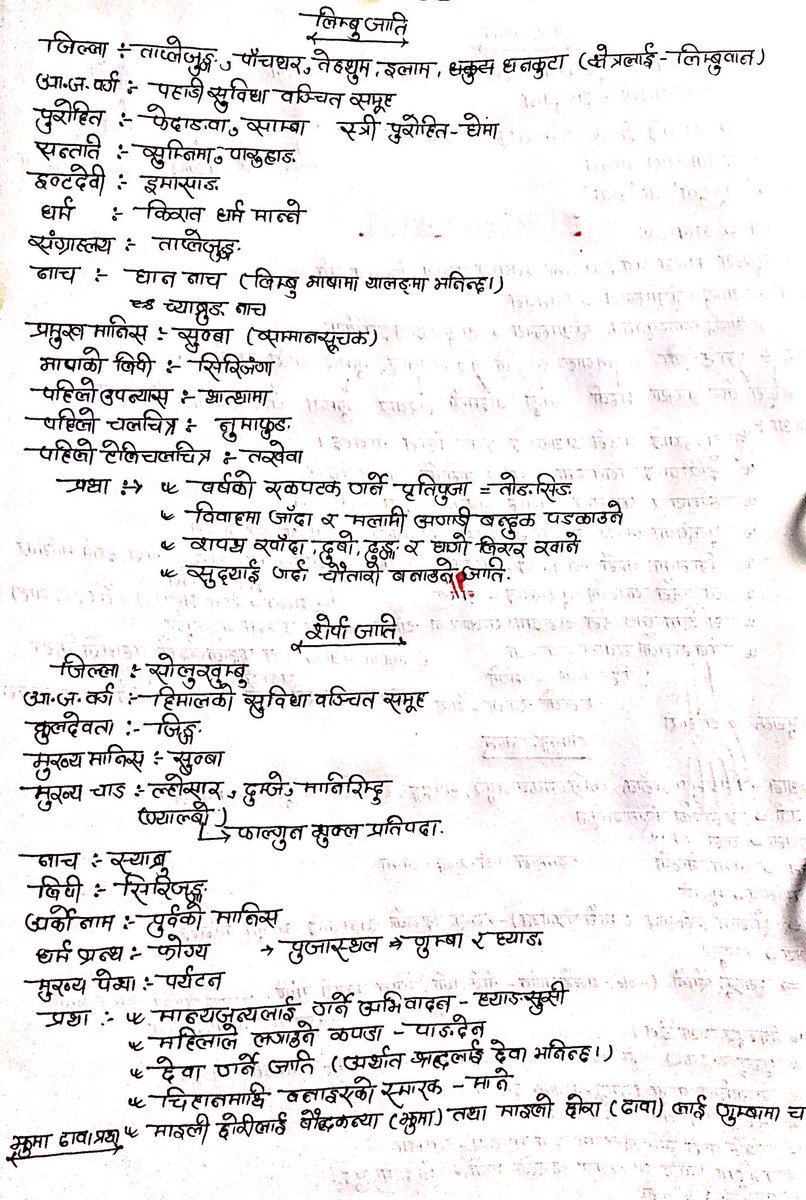 लिम्बु जाति
जिल्ला :- ताप्लेजुङ्ग, पाँचथर, तेह्रथुम, इलाम, धनकुटा (क्षेत्रलाई - लिम्बुवान)
आ.ज. वर्ग :- पहाडी सुविधा वञ्चित समूह
पुरोहित :- फेदाङवा, साम्बा स्त्री पुरोहित - घेमा
सन्तति :- सुम्निमा, पारुहाङ
इष्टदेवी :- इमासाङ
धर्म :- किरात धर्म मान्ने
संग्राहलय :- ताप्लेजुङ्ग
नाच :- धान नाच (लिम्बु भाषामा यालङ्मा भनिन्छ।)
च्याब्रुङ नाच
प्रमुख मानिस :- सुब्बा (सामानसूचक)
भाषाको लिपी :- सिरिजंगा
पहिलो उपन्यास :- थात्थामा
पहिलो चलचित्र :- नुमाफुङ
पहिलो टेलिचलचित्र :- तरखेवा
प्रथा :→ * वर्षको एकपटक गर्ने पृतिपुजा = तोङसिङ
* विवाहमा जाँदा र मलामी अगाडी बन्दुक पडकाउने
* शपथ खाँदा, दुबो, ढुङ्गा र धागो लिएर खाने
* सुदयाई गर्दा चौतारो बनाउने जाति.
शेर्पा जाति
जिल्ला :- सोलुखुम्बु
आ.ज. वर्ग :- हिमालको सुविधा वञ्चित समूह
कुलदेवता :- जिङ्ग
मुख्य मानिस :- सुब्बा
मुख्य चाड :- ल्होसार, दुम्जे, मानिरिम्दु
(ग्याल्बो) → फाल्गुन शुक्ल प्रतिपदा.
नाच :- स्याब्रु
लिपी :- सिरिजङ्गा
अर्को नाम :- पुर्वको मानिस
धर्म ग्रन्थ :- फोग्य → पुजास्थल ⇒ गुम्बा र घ्याङ
मुख्य पेशा :- पर्यटन
प्रथा :- * मान्यजन्यलाई गर्ने अभिवादन - घ्याङसुसी
* महिलाले लगाउने कपडा - पाङदेन
* देवा गर्ने जाति (अर्थात श्राद्धलाई देवा भनिन्छ।)
* चिहानमाथि बनाइएको स्मारक - माने
झुमा ढावा प्रथा * माइली छोरीलाई बौद्धकन्या (झुमा) तथा माइलो छोरा (ढावा) लाई गुम्बामा च